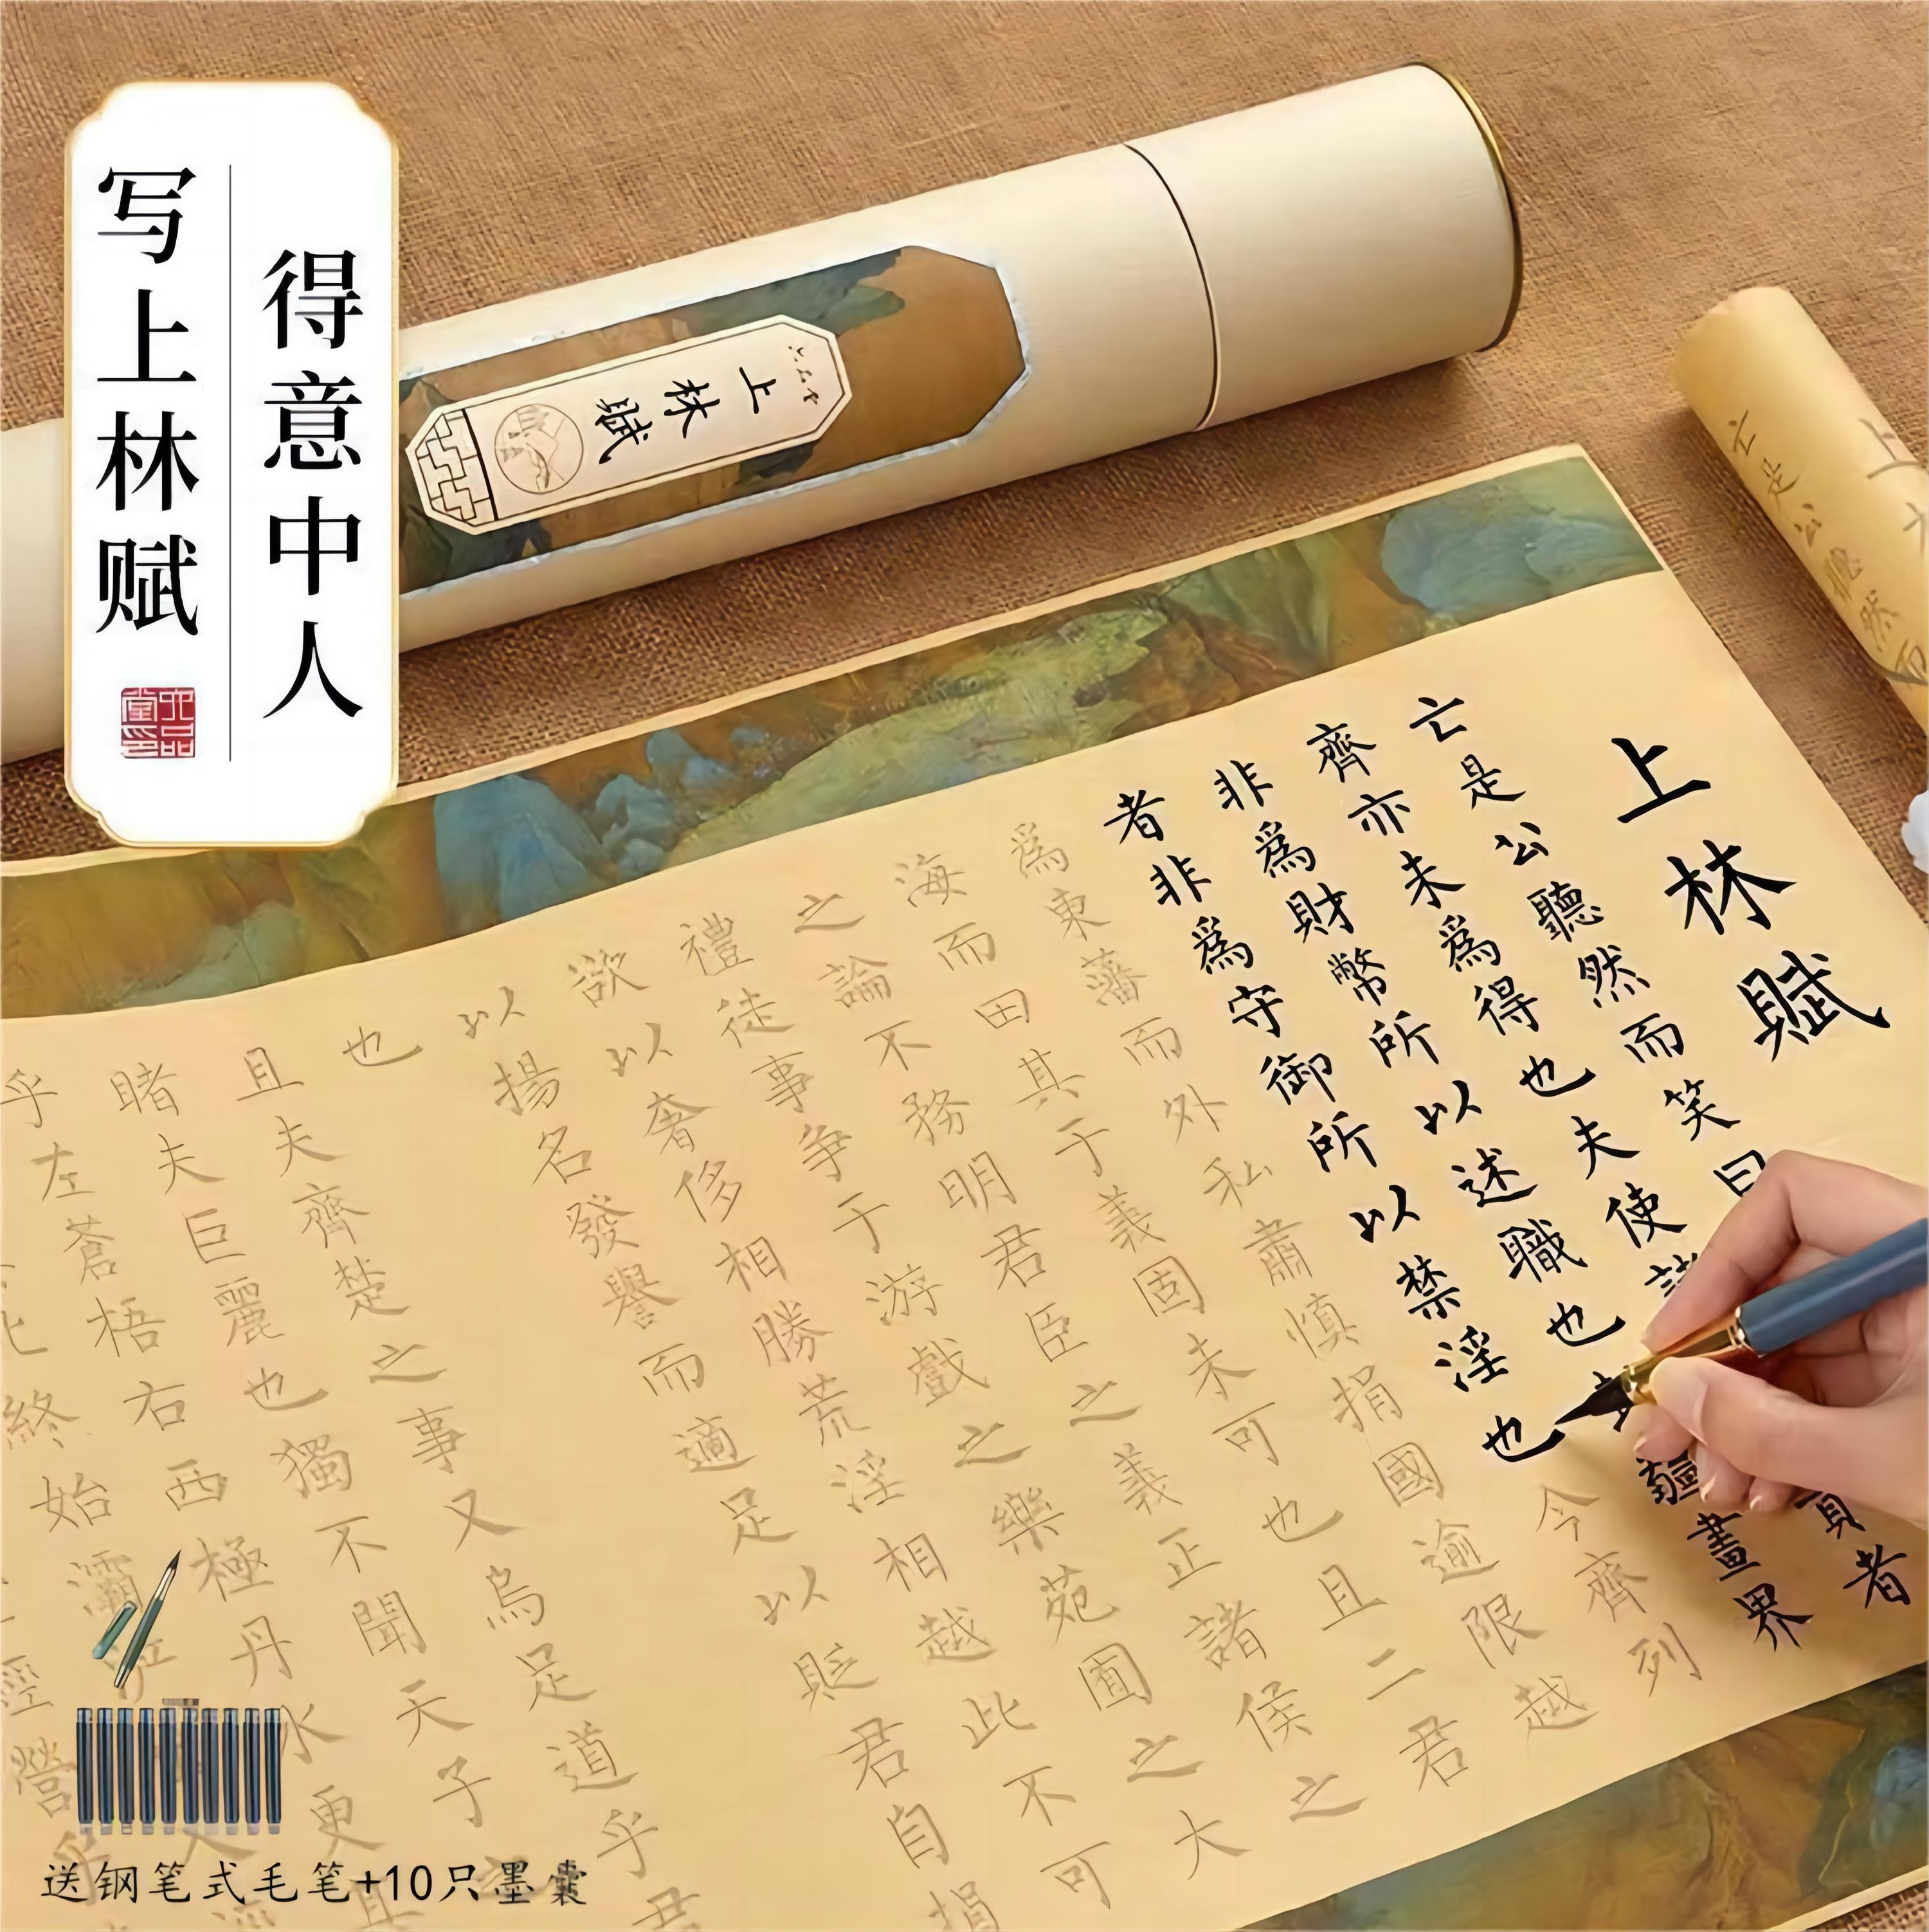 写上林赋
得意中人
六品堂印
上林賦
上林賦
亡是公聽然而笑曰
齊亦未爲得也夫使諸貢者
非爲財幣所以述職也疆畫界
者非爲守御所以禁淫也今齊列
爲東藩而外私肅慎捐國逾限越
海而田其于義固未可也且二君
之論不務明君臣之義正諸侯之
禮徒事争于游戲之樂苑囿之大
欲以奢侈相勝荒淫相越此不可
以揚名發譽而適足以貶君自損
也
且夫齊楚之事又烏足道乎君
睹夫巨麗也獨不聞天子之
乎左蒼梧右西極丹水更其
北終始灞浐
經營乎
送钢笔式毛笔+10只墨囊